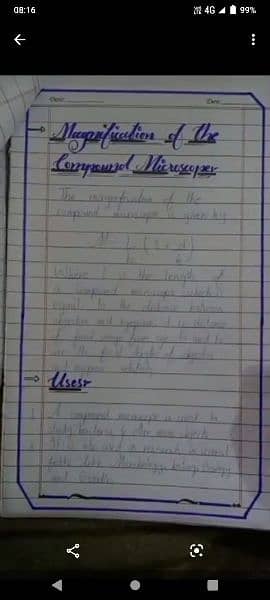 08:16
4G 99%
Date: Date:
Magnification of the
Compound Microscope
The magnification of the
compound microscope is given by
M = L (1 + d
Where L is the length of
a compound microscope which is
equal to the distance between
objective and eyepiece, d is distance
of final image from eye,
are the focal length of
and eyepiece
Uses:
A compound microscope is used to
study bacteria & other
It is also used in research in several
fields like Microbiology, Botany, Geology
and Genetics.